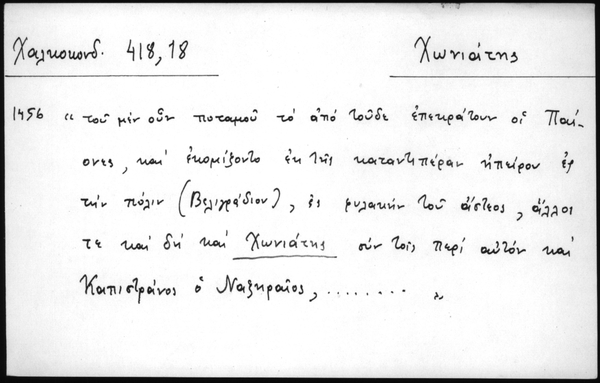 Χαλκοκονδ. 418,18 Χωνιάτης
1456 “ τοῦ μὲν οὖν ποταμοῦ τὸ ἀπὸ τοῦδε ἐπεκράτουν οἱ Παί-
ονες, καὶ ἐκομίζοντο ἐκ τῆς καταντιπέραν ἠπείρου ἐς
τὴν πόλιν (Βελιγράδιον), ἐς φυλακὴν τοῦ ἄστεος, ἄλλοι
τε καὶ δὴ καὶ Χωνιάτης σὺν τοῖς περὶ αὐτὸν καὶ
Καπιστράνος ὁ Ναζηραῖος, ........ „